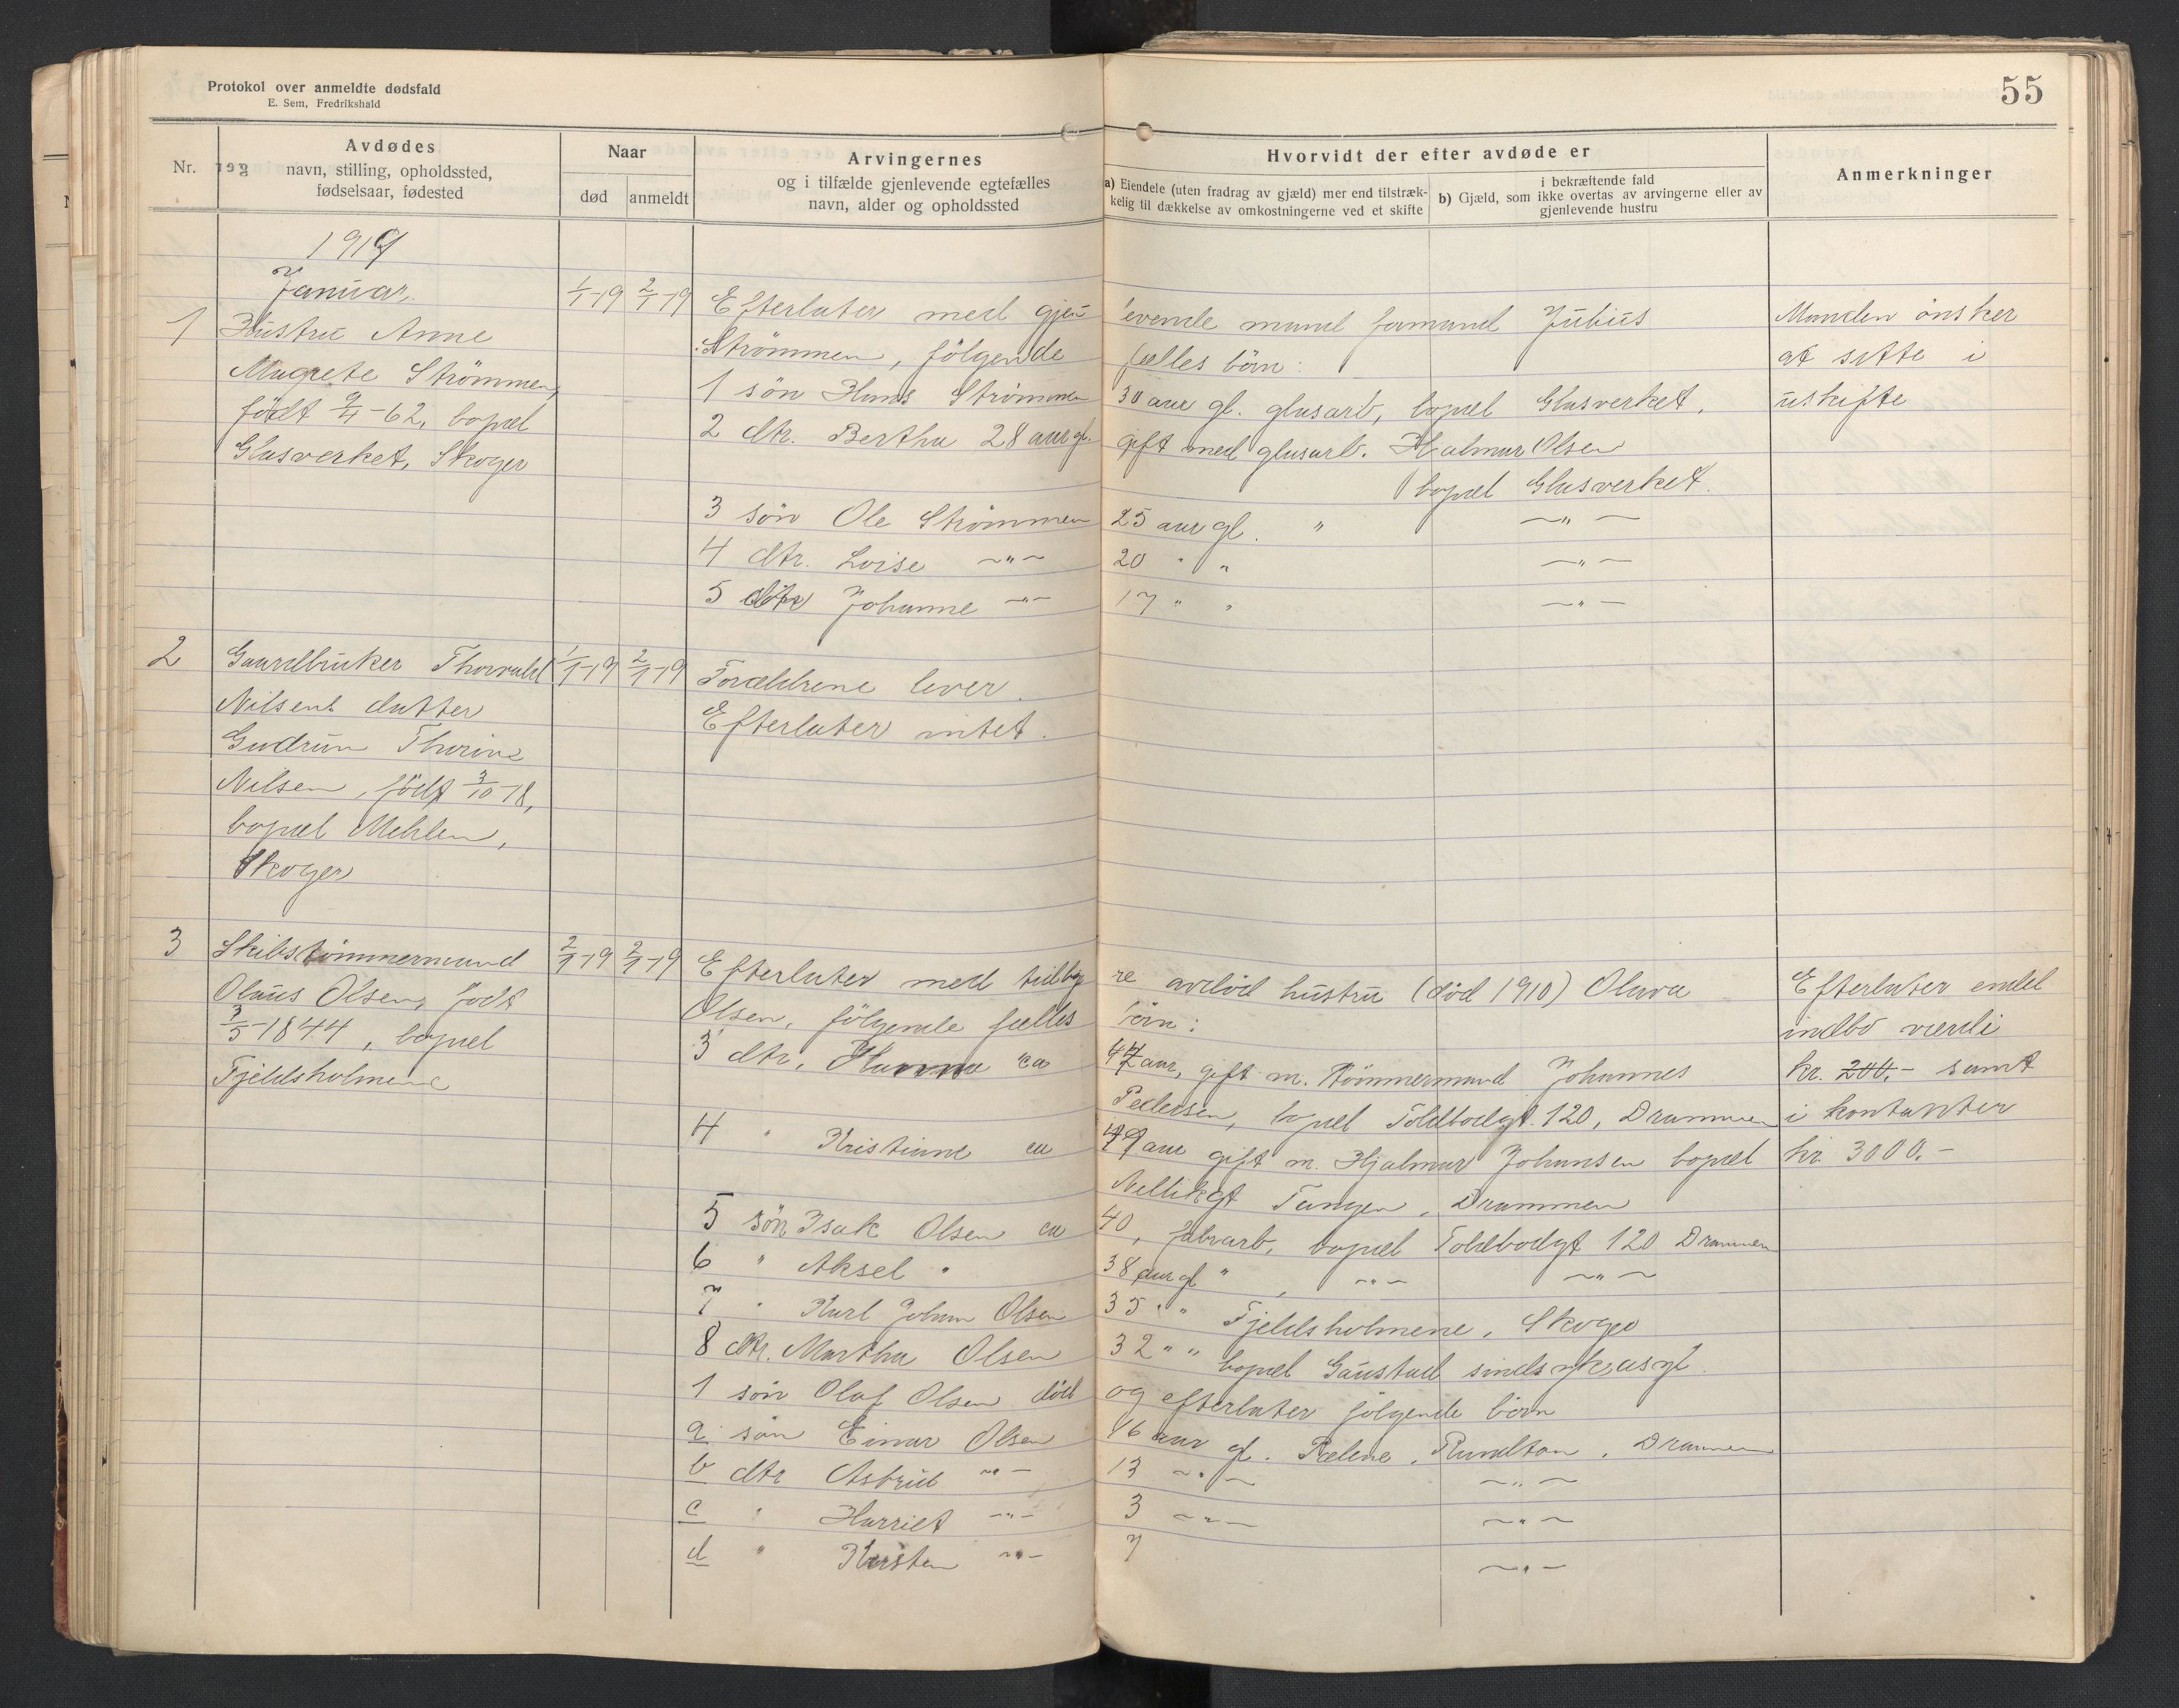 Protokol over anmeldte dødsfald
E. Sem, Fredrikshald
55
Nr.
Avdødes
navn, stilling, opholdssted,
fødselsaar, fødested
Naar
død
anmeldt
Arvingernes
og i tilfælde gjenlevende egtefælles
navn, alder og opholdssted
Hvorvidt der efter avdøde er
a) Eiendele (uten fradrag av gjæld) mer end tilstræk-
kelig til dækkelse av omkostningerne ved et skifte
i bekræftende fald
b) Gjæld, som ikke overtas av arvingerne eller av
gjenlevende hustru
Anmerkninger
1919
Januar.
1 Hustru Anne
Magrete Strömmen,
född 9/4-62, bopæl
Glasverket, Skoger
1/1-19 2/1-19
Efterlater med gjen levende mand formand Julius
Strömmen, fölgende fælles börn:
1 sön Hans Strömmen 30 aar gl. glasarb, bopæl Glasverket,
2 dtr. Bertha 28 aar gl. gift med glasarb. Hjalmar Olsen
bopæl Glasverket.
3 sön Ole Strömmen 25 aar gl. " —"—
4 dtr. Loise —"— 20 " " —"—
5 dtr Johanne —"— 17 " " —"—
Manden önsker
at sitte i
uskifte
2 Gaardbruker Thorvald
Nilsens datter
Gudrun Thorine
Nilsen, född 3/10-18,
bopæl Mehlen,
Skoger
1/1-19 2/1-19
Forældrene lever.
Efterlater intet.
3 Skibstömmermand
Olaus Olsen, födt
3/5-1844, bopæl
Fjeldsholmene
2/1-19 2/1-19
Efterlater med tidlige re avdöd hustru (död 1910) Olava
Olsen, fölgende fælles börn:
3 dtr. Hanna ca 47 aar, gift m. tömmermand Johannes
Pedersen, bopæl Toldbodgt. 120, Drammen
4 " Kristiane ca 49 aar gift m. Hjalmar Johansen bopæl
Nellikgt Tangen, Drammen
5 sön Isak Olsen ca 40, fabrarb, bopæl Toldbodgt 120 Drammen
6 " Aksel " 38 aar gl " , —"— —"—
7 " Karl Johan Olsen 35 " " Fjeldsholmene, Skoger
8 dtr. Martha Olsen 32 " " bopæl Gaustad sindsykeasyl.
1 sön Olaf Olsen död og efterlater fölgende börn
a sön Einar Olsen 16 aar gl. Drammen
b dtr Astrid —"— 13 —"— —"—
c " Harriet —"— 3 —"— —"—
d " Kirsten —"— 7 —"—
Efterlater endel
indbo værdi
kr. 200,- samt
i kontanter
kr. 3000.-